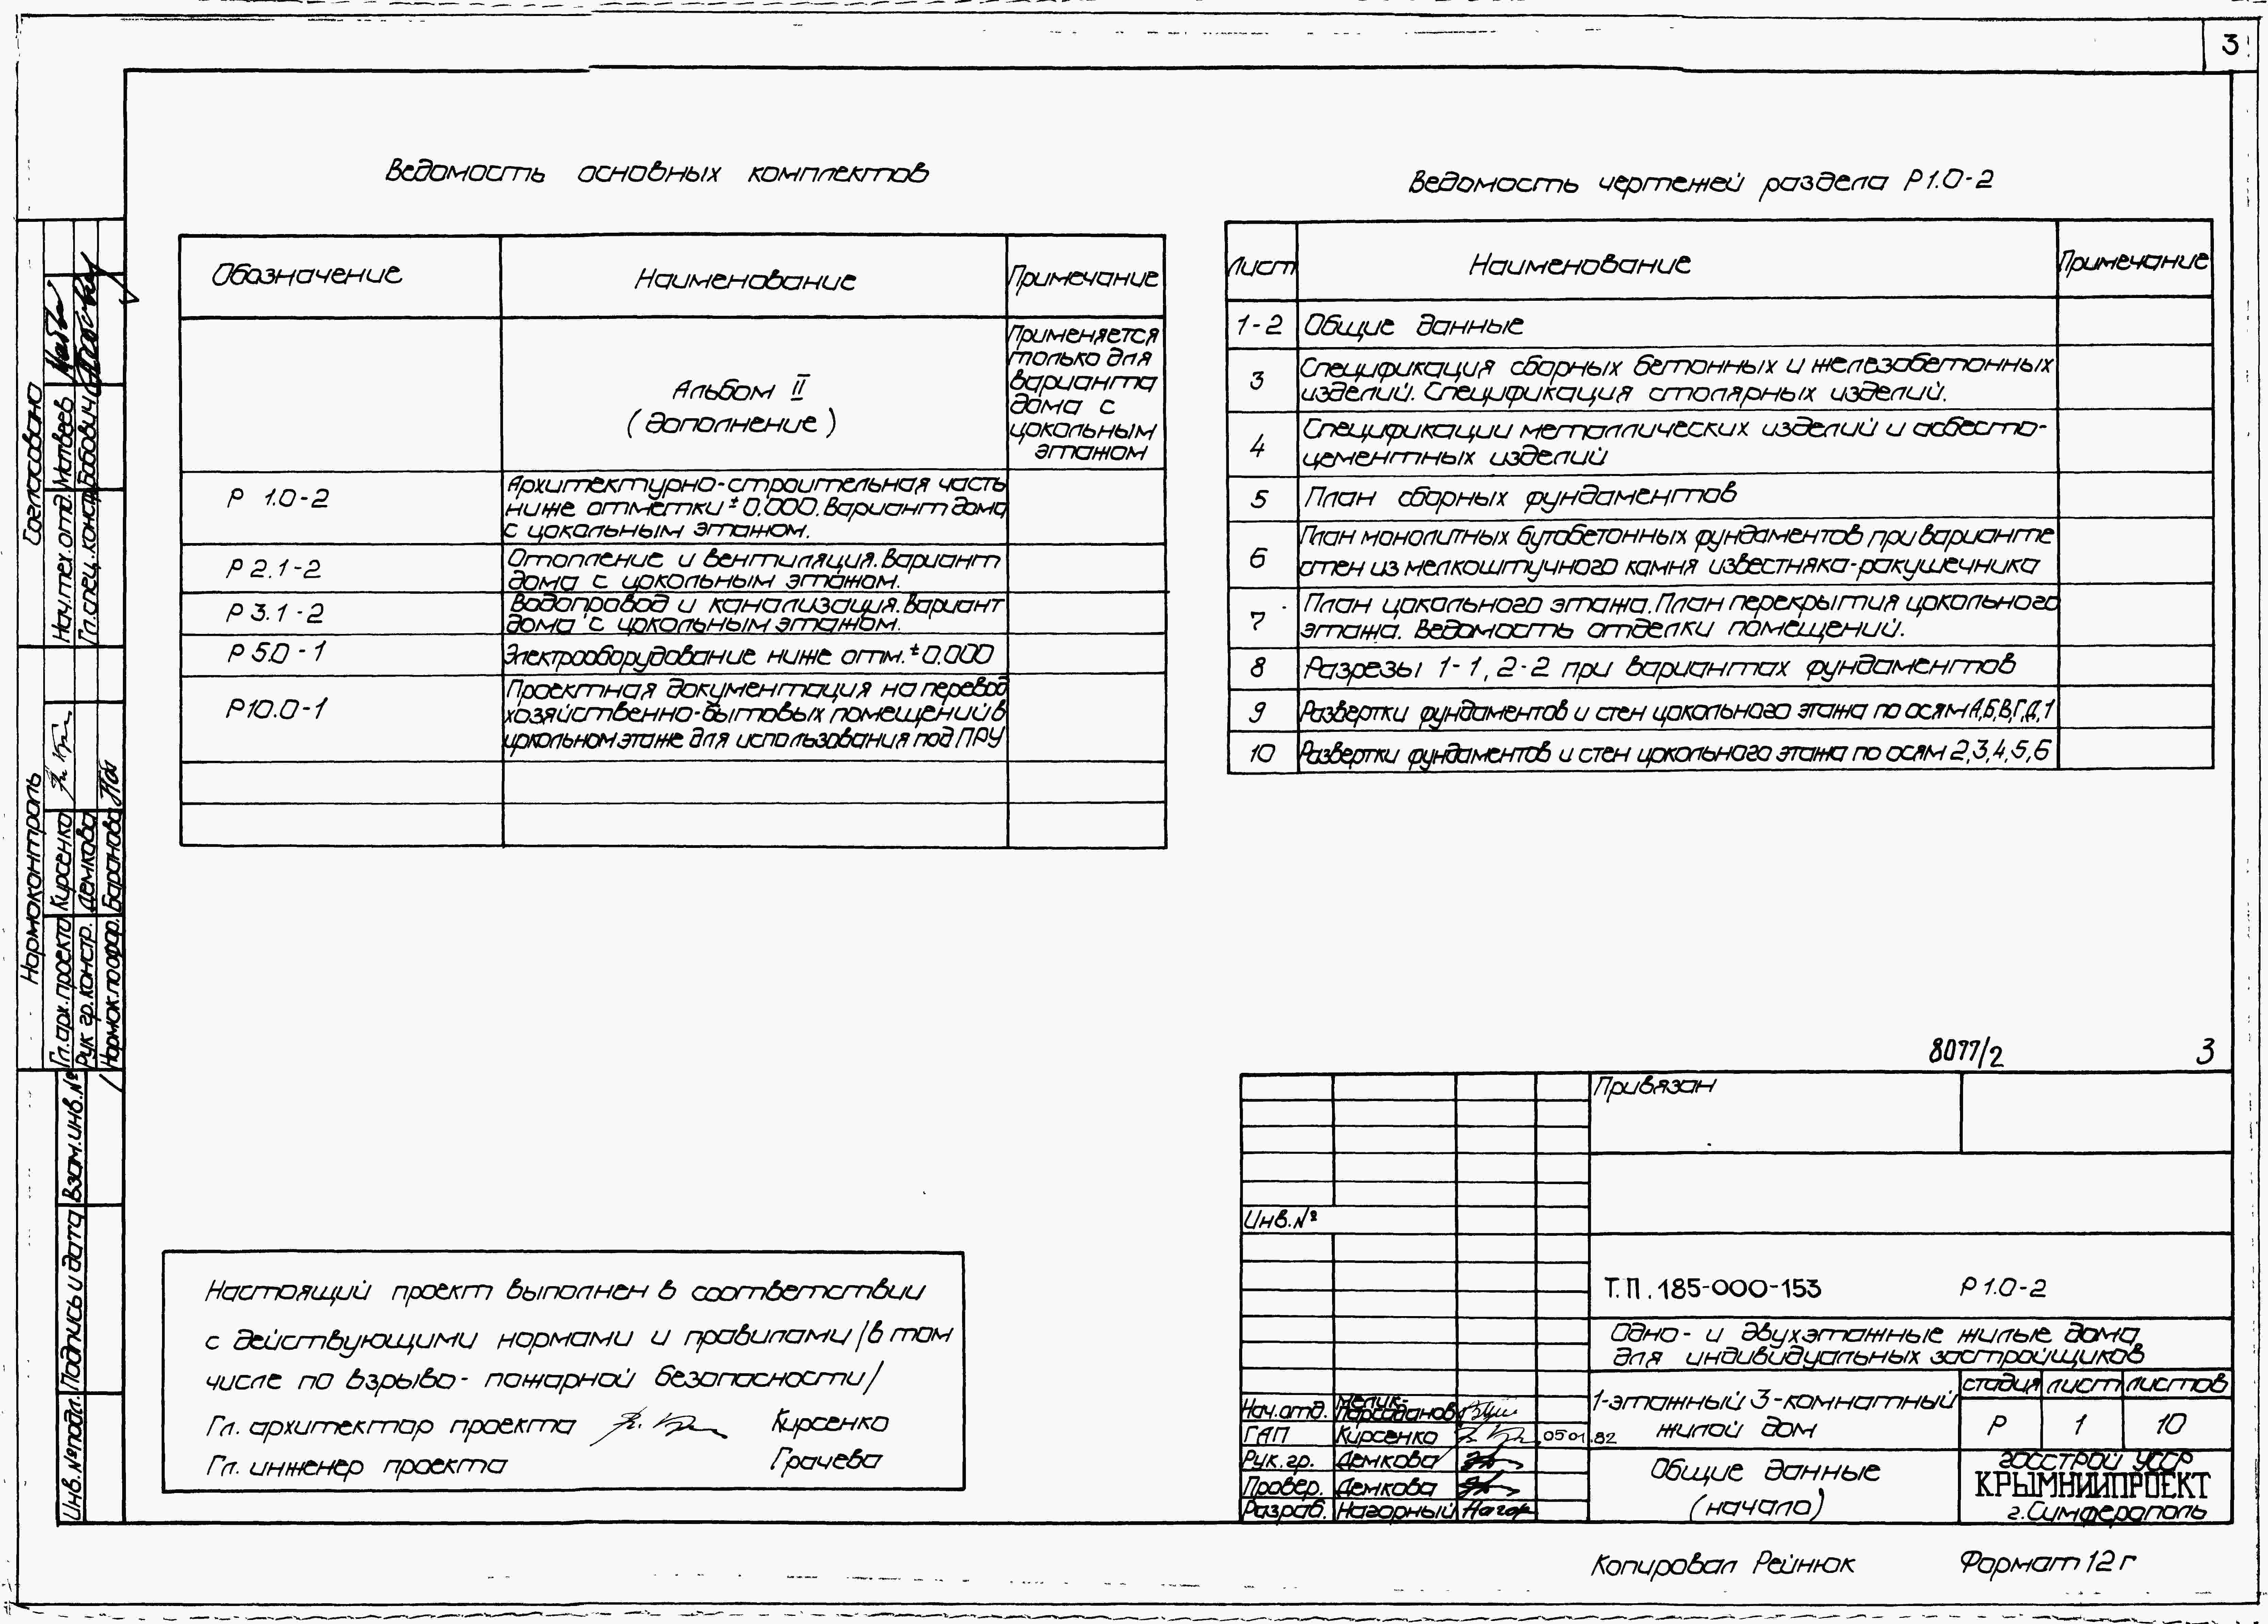 3
Ведомость основных комплектов
Обозначение Наименование Примечание
Альбом II
(дополнение)
Применяется
только для
варианта
дома с
цокольным
этажом
Р 1.0-2
Архитектурно-строительная часть
ниже отметки ±0.000. Вариант дома
с цокольным этажом.
Р 2.1-2
Отопление и вентиляция. Вариант
дома с цокольным этажом.
Р 3.1-2
Водопровод и канализация. Вариант
дома с цокольным этажом.
Р 5.0-1 Электрооборудование ниже отм. ±0.000
Р10.0-1
Проектная документация на перевод
хозяйственно-бытовых помещений в
цокольном этаже для использования под ПРУ
Ведомость чертежей раздела Р1.0-2
Лист Наименование Примечание
1-2 Общие данные
3
Спецификация сборных бетонных и железобетонных
изделий. Спецификация столярных изделий.
4
Спецификации металлических изделий и асбесто-
цементных изделий
5 План сборных фундаментов
6
План монолитных бутобетонных фундаментов при варианте
стен из мелкоштучного камня известняка-ракушечника
7
План цокольного этажа. План перекрытия цокольного
этажа. Ведомость отделки помещений.
8 Разрезы 1-1, 2-2 при вариантах фундаментов
9 Развертки фундаментов и стен цокольного этажа по осям А,Б,В,Г,Д,1
10 Развертки фундаментов и стен цокольного этажа по осям 2,3,4,5,6
Согласовано
Нач.тех.отд. Матвеев
Гл.спец.констр. Бабович
Нормоконтроль
Гл.арх.проекта Кирсенко
Рук гр.констр. Демкова
Нормок.по офор. Баранова
Взам.инв.№
Подпись и дата
Инв.№подл.
Настоящий проект выполнен в соответствии
с действующими нормами и правилами /в том
числе по взрыво- пожарной безопасности/
Гл. архитектор проекта Кирсенко
Гл. инженер проекта Грачева
8077/2 3
Привязан
Инв.№
Т.П. 185-000-153 Р 1.0-2
Одно- и двухэтажные жилые дома
для индивидуальных застройщиков
Нач.отд. Мелик-Парсаданов
ГАП Кирсенко 05 01.82
Рук.гр. Демкова
Провер. Демкова
Разраб. Нагорный Нагор
1-этажный 3-комнатный
жилой дом
стадия лист листов
Р 1 10
Общие данные
(начало)
ГОССТРОЙ УССР
КРЫМНИИПРОЕКТ
г.Симферополь
Копировал Рейнюк Формат 12г